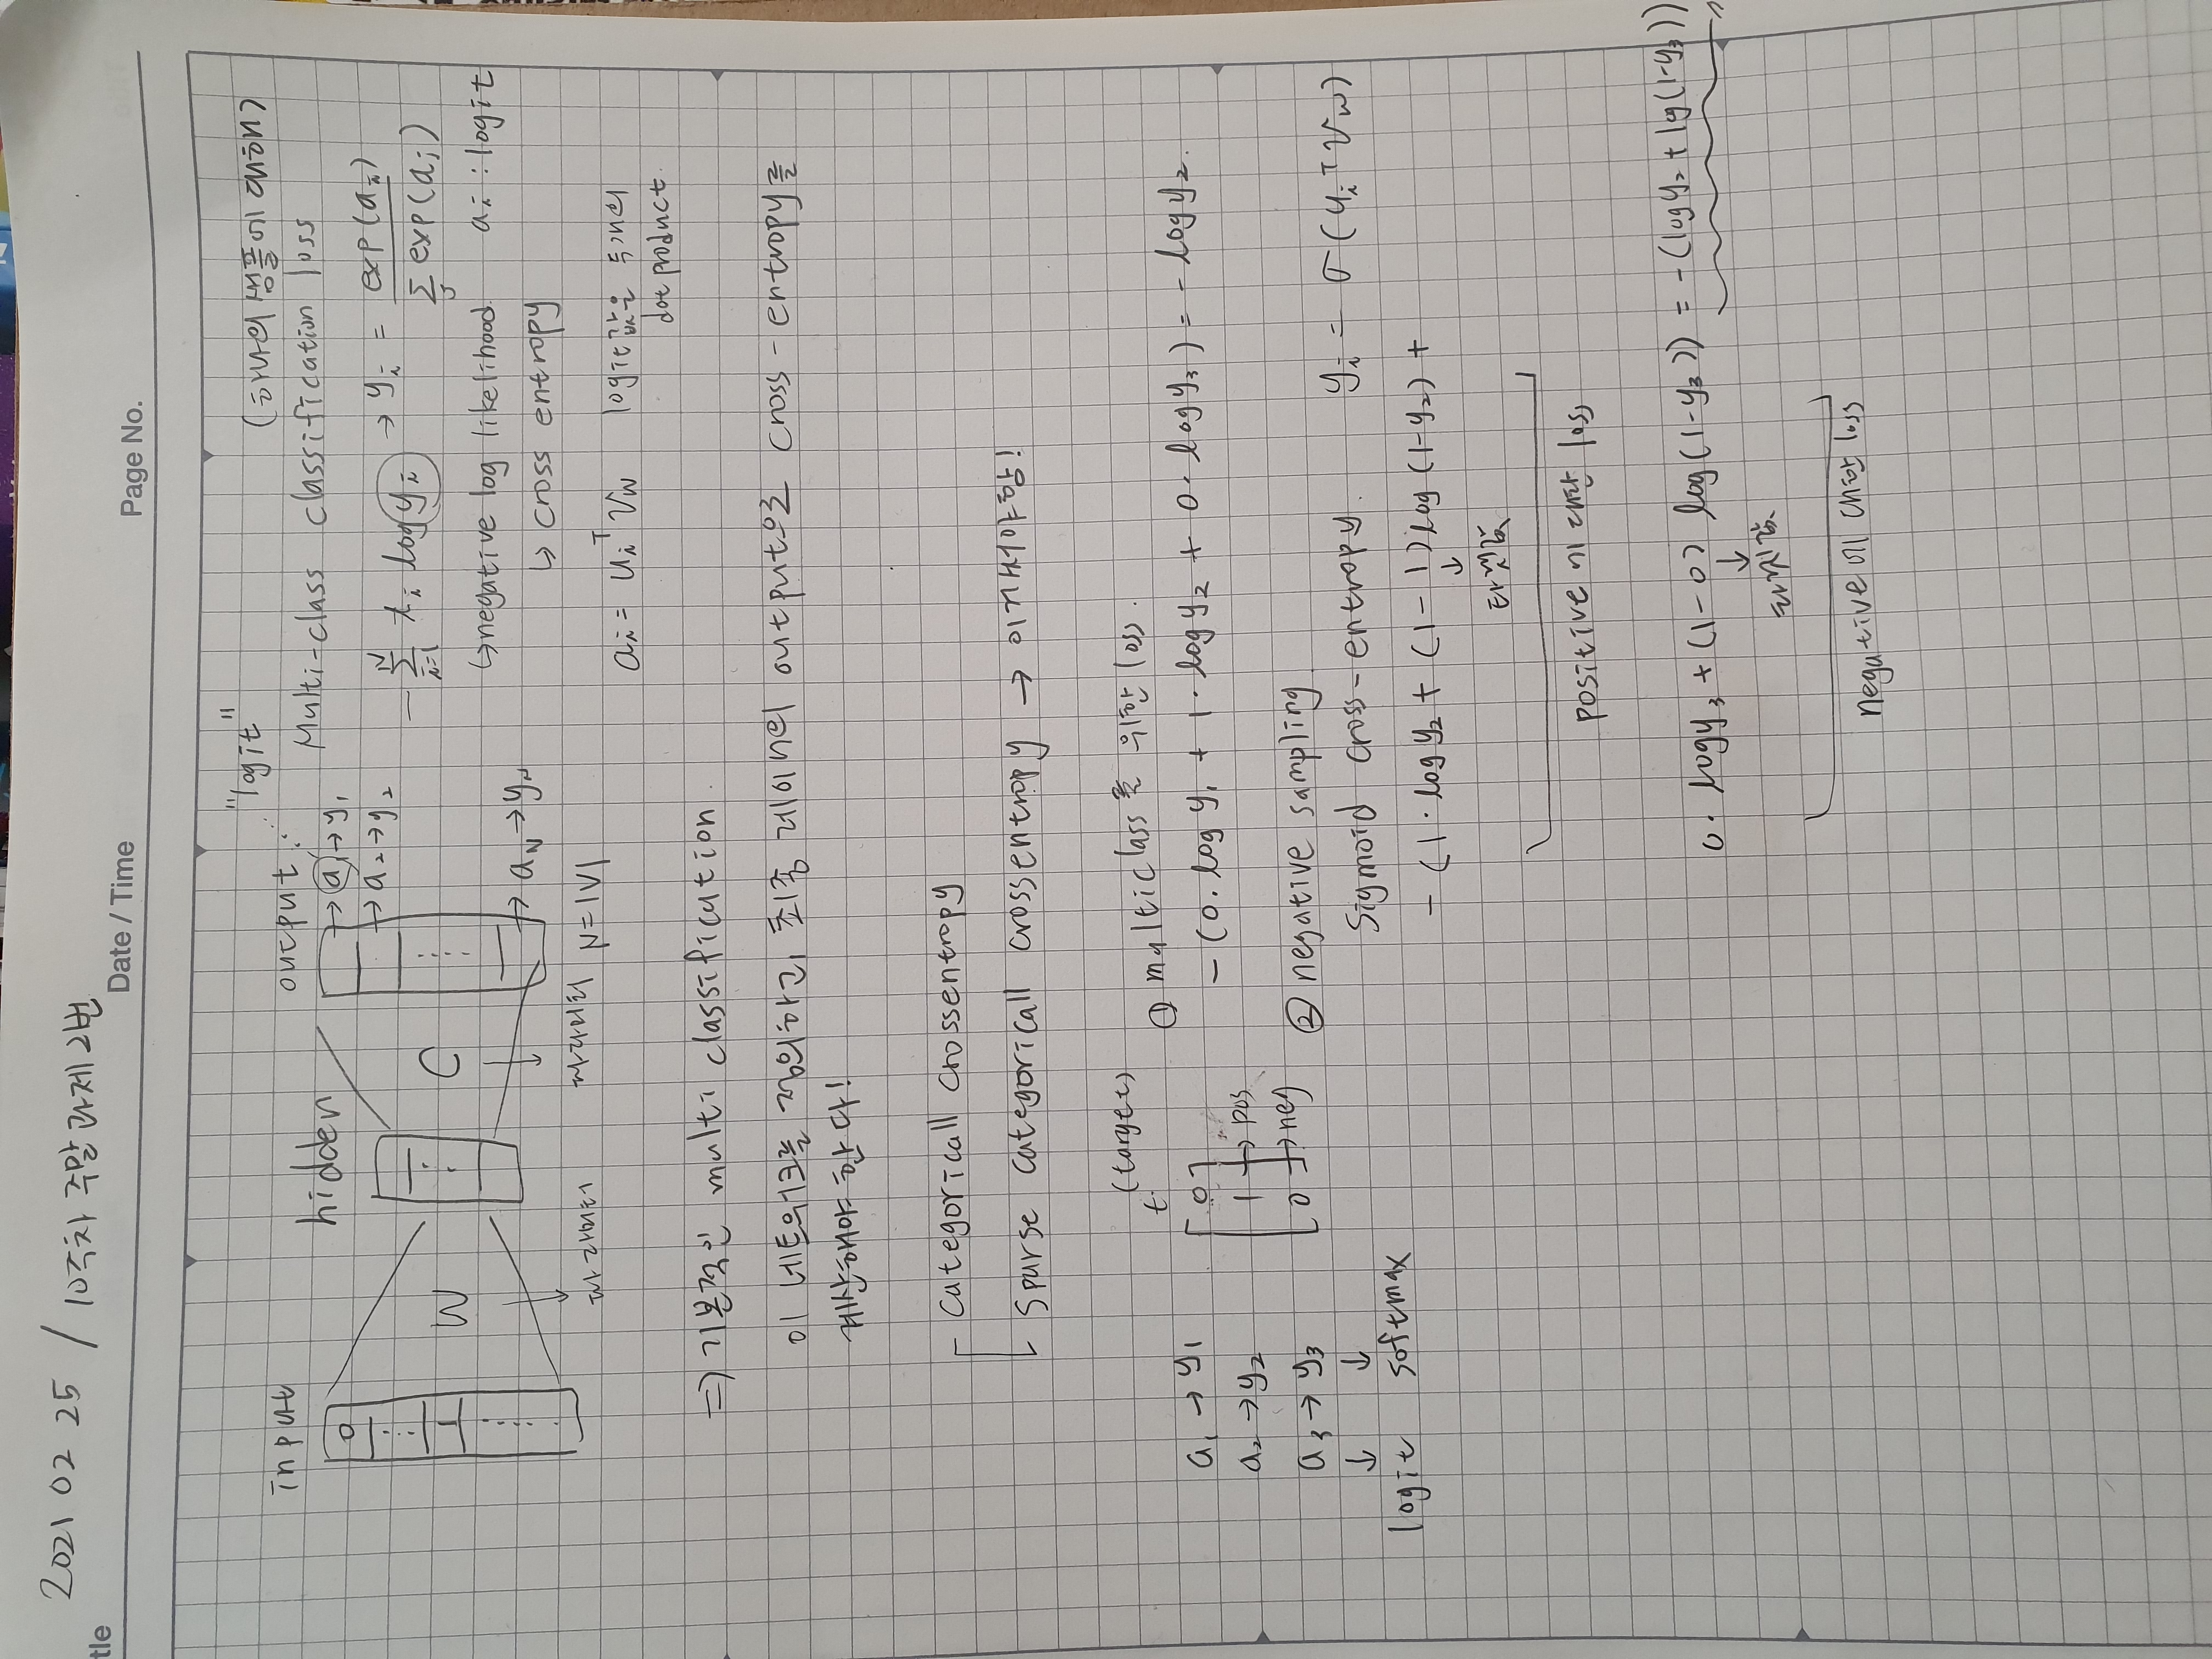 2021 02 25 / 10주차 주말 과제 2번
tle
Date / Time
Page No.
"logit"
(하나의 샘플에 대해)
input
hidden
output
Multi-class classification loss
0
1
W
C
→ a₁ → y₁
→ a₂ → y₂
→ a_N → y_N
- Σ_{i=1}^{N} t_i log y_i → y_i = exp(a_i) / Σ_j exp(a_j)
↳ negative log likelihood
a_i : logit
↳ cross entropy
파라미터
파라미터
N=|V|
a_i = u_i^T v_w
logit값은 두개의
dot product.
⇒ 기본적인 multi classification.
이 네트워크를 정의하고, 최종 레이어의 output으로 cross-entropy를
계산해야 한다!
categoricall crossentropy
sparse categoricall crossentropy → 이거써야함!
(target)
t
a₁ → y₁
a₂ → y₂
a₃ → y₃
↓ ↓
logit softmax
0
1 → pos
0 → neg
① multiclass를 위한 loss.
- (0. log y₁ + 1· log y₂ + 0· log y₃) = - log y₂.
② negative sampling
Sigmoid cross-entropy. y_i = σ(u_i^T v_w)
- (1·log y₂ + (1-1) log (1-y₂) +
↓
타겟값
positive에 대한 loss
0. log y₃ + (1-0) log(1-y₃)) = -(log y₂ + log(1-y₃))
↓
타겟값.
negative에 대한 loss